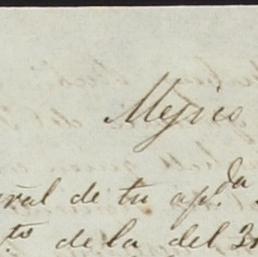 Mejico
ral de tu ap.da
to de la del 3